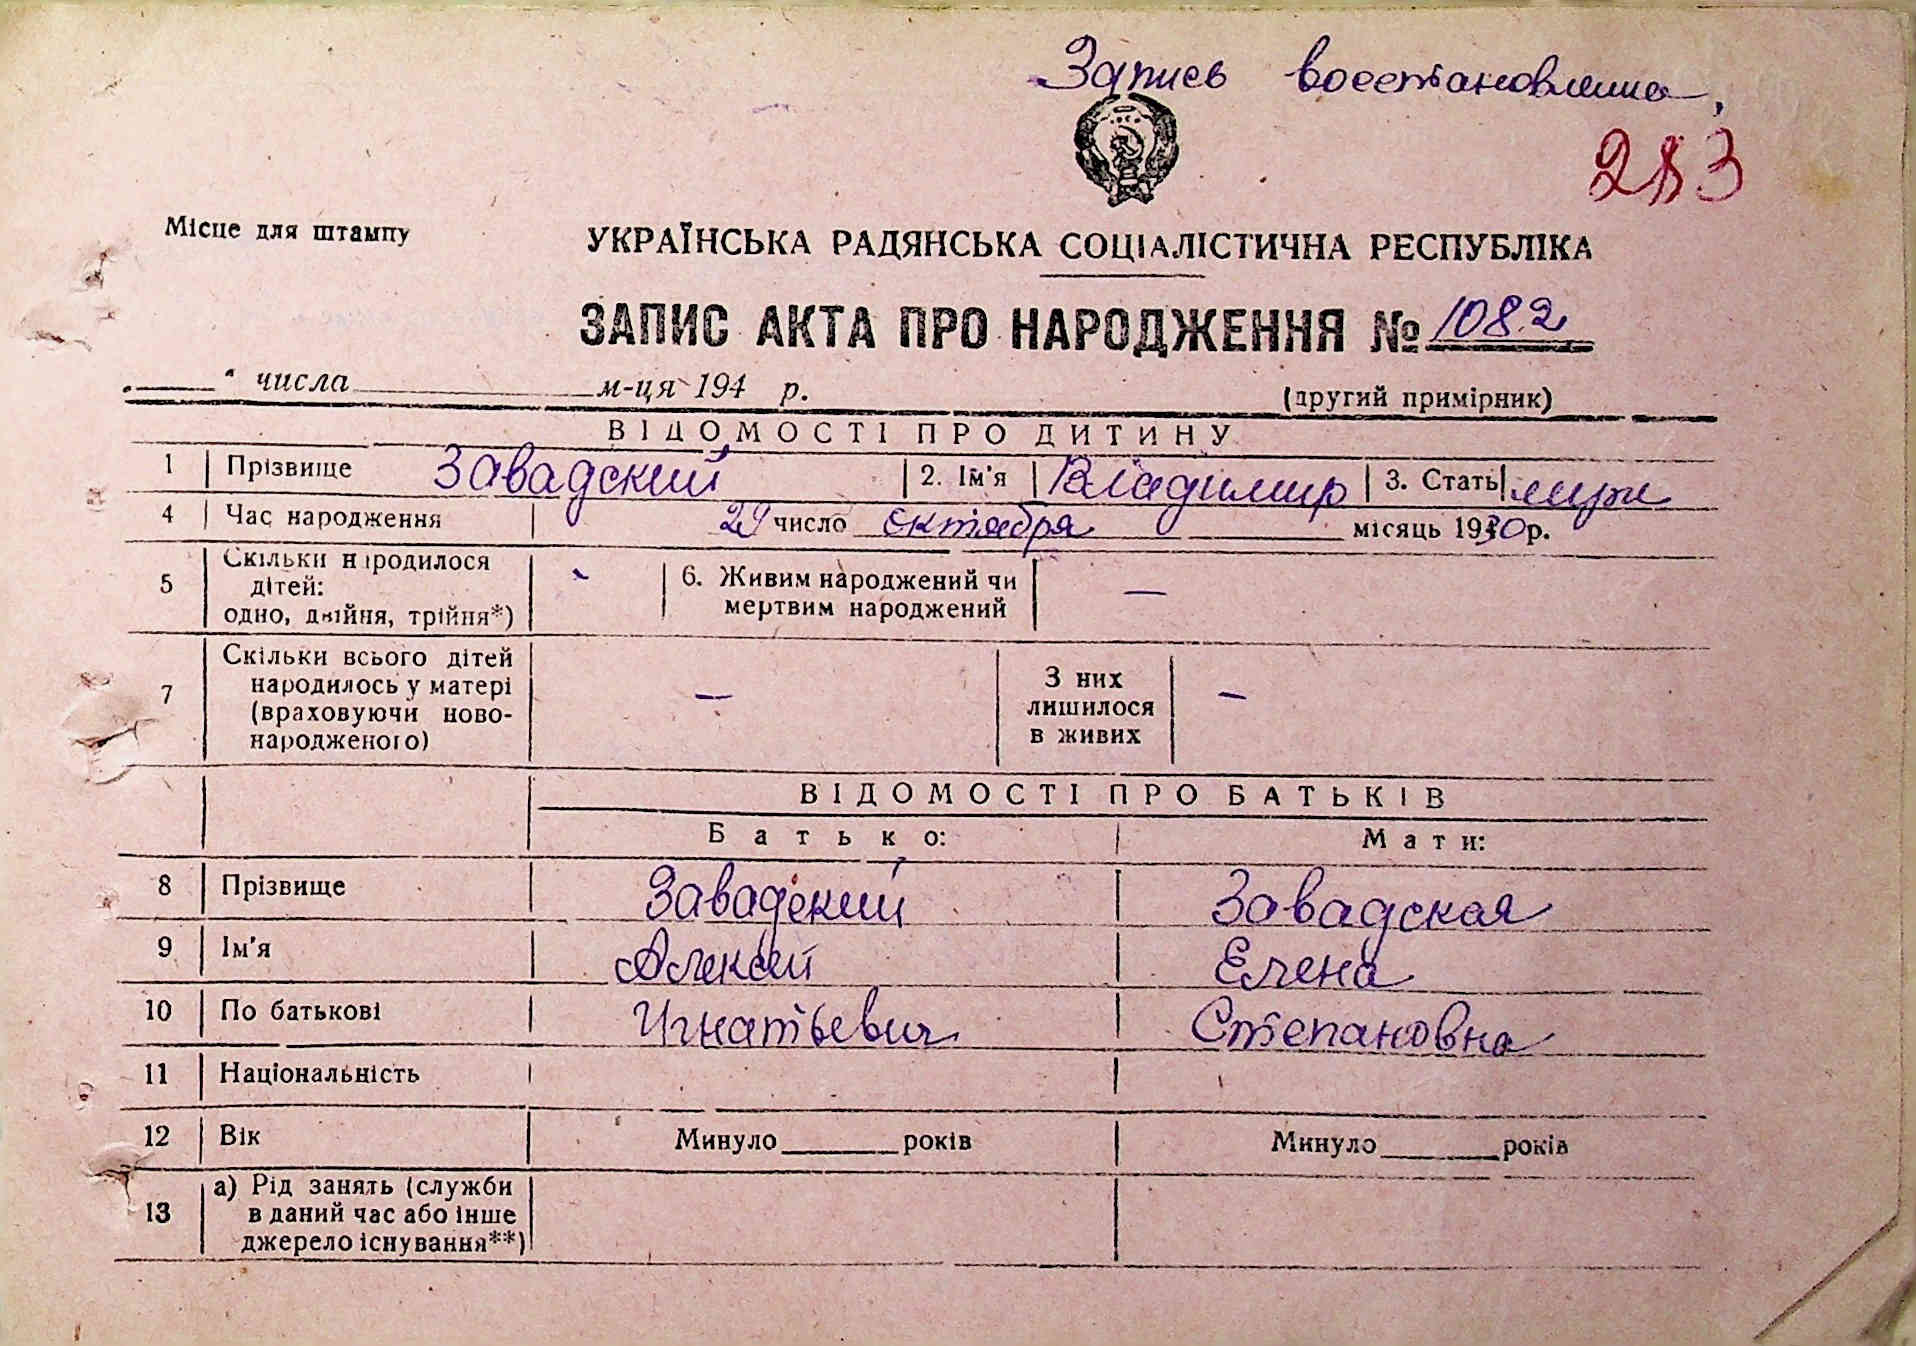 Запись восстановлена,
283
Місце для штампу
УКРАЇНСЬКА РАДЯНСЬКА СОЦІАЛІСТИЧНА РЕСПУБЛІКА
ЗАПИС АКТА ПРО НАРОДЖЕННЯ № 1082
„ “ числа м-ця 194 р.
(другий примірник)
ВІДОМОСТІ ПРО ДИТИНУ
1 Прізвище Завадский 2. Ім'я Владимир 3. Стать муж
4 Час народження 29 число октября місяць 1930 р.
5 Скільки народилося дітей: одно, двійня, трійня*) - 6. Живим народжений чи мертвим народжений —
7 Скільки всього дітей народилось у матері (враховуючи новонародженого) — З них лишилося в живих —
ВІДОМОСТІ ПРО БАТЬКІВ
Батько: Мати:
8 Прізвище Завадский Завадская
9 Ім'я Алексей Елена
10 По батькові Игнатьевич Степановна
11 Національність
12 Вік Минуло років Минуло років
13 а) Рід занять (служби в даний час або інше джерело існування**)